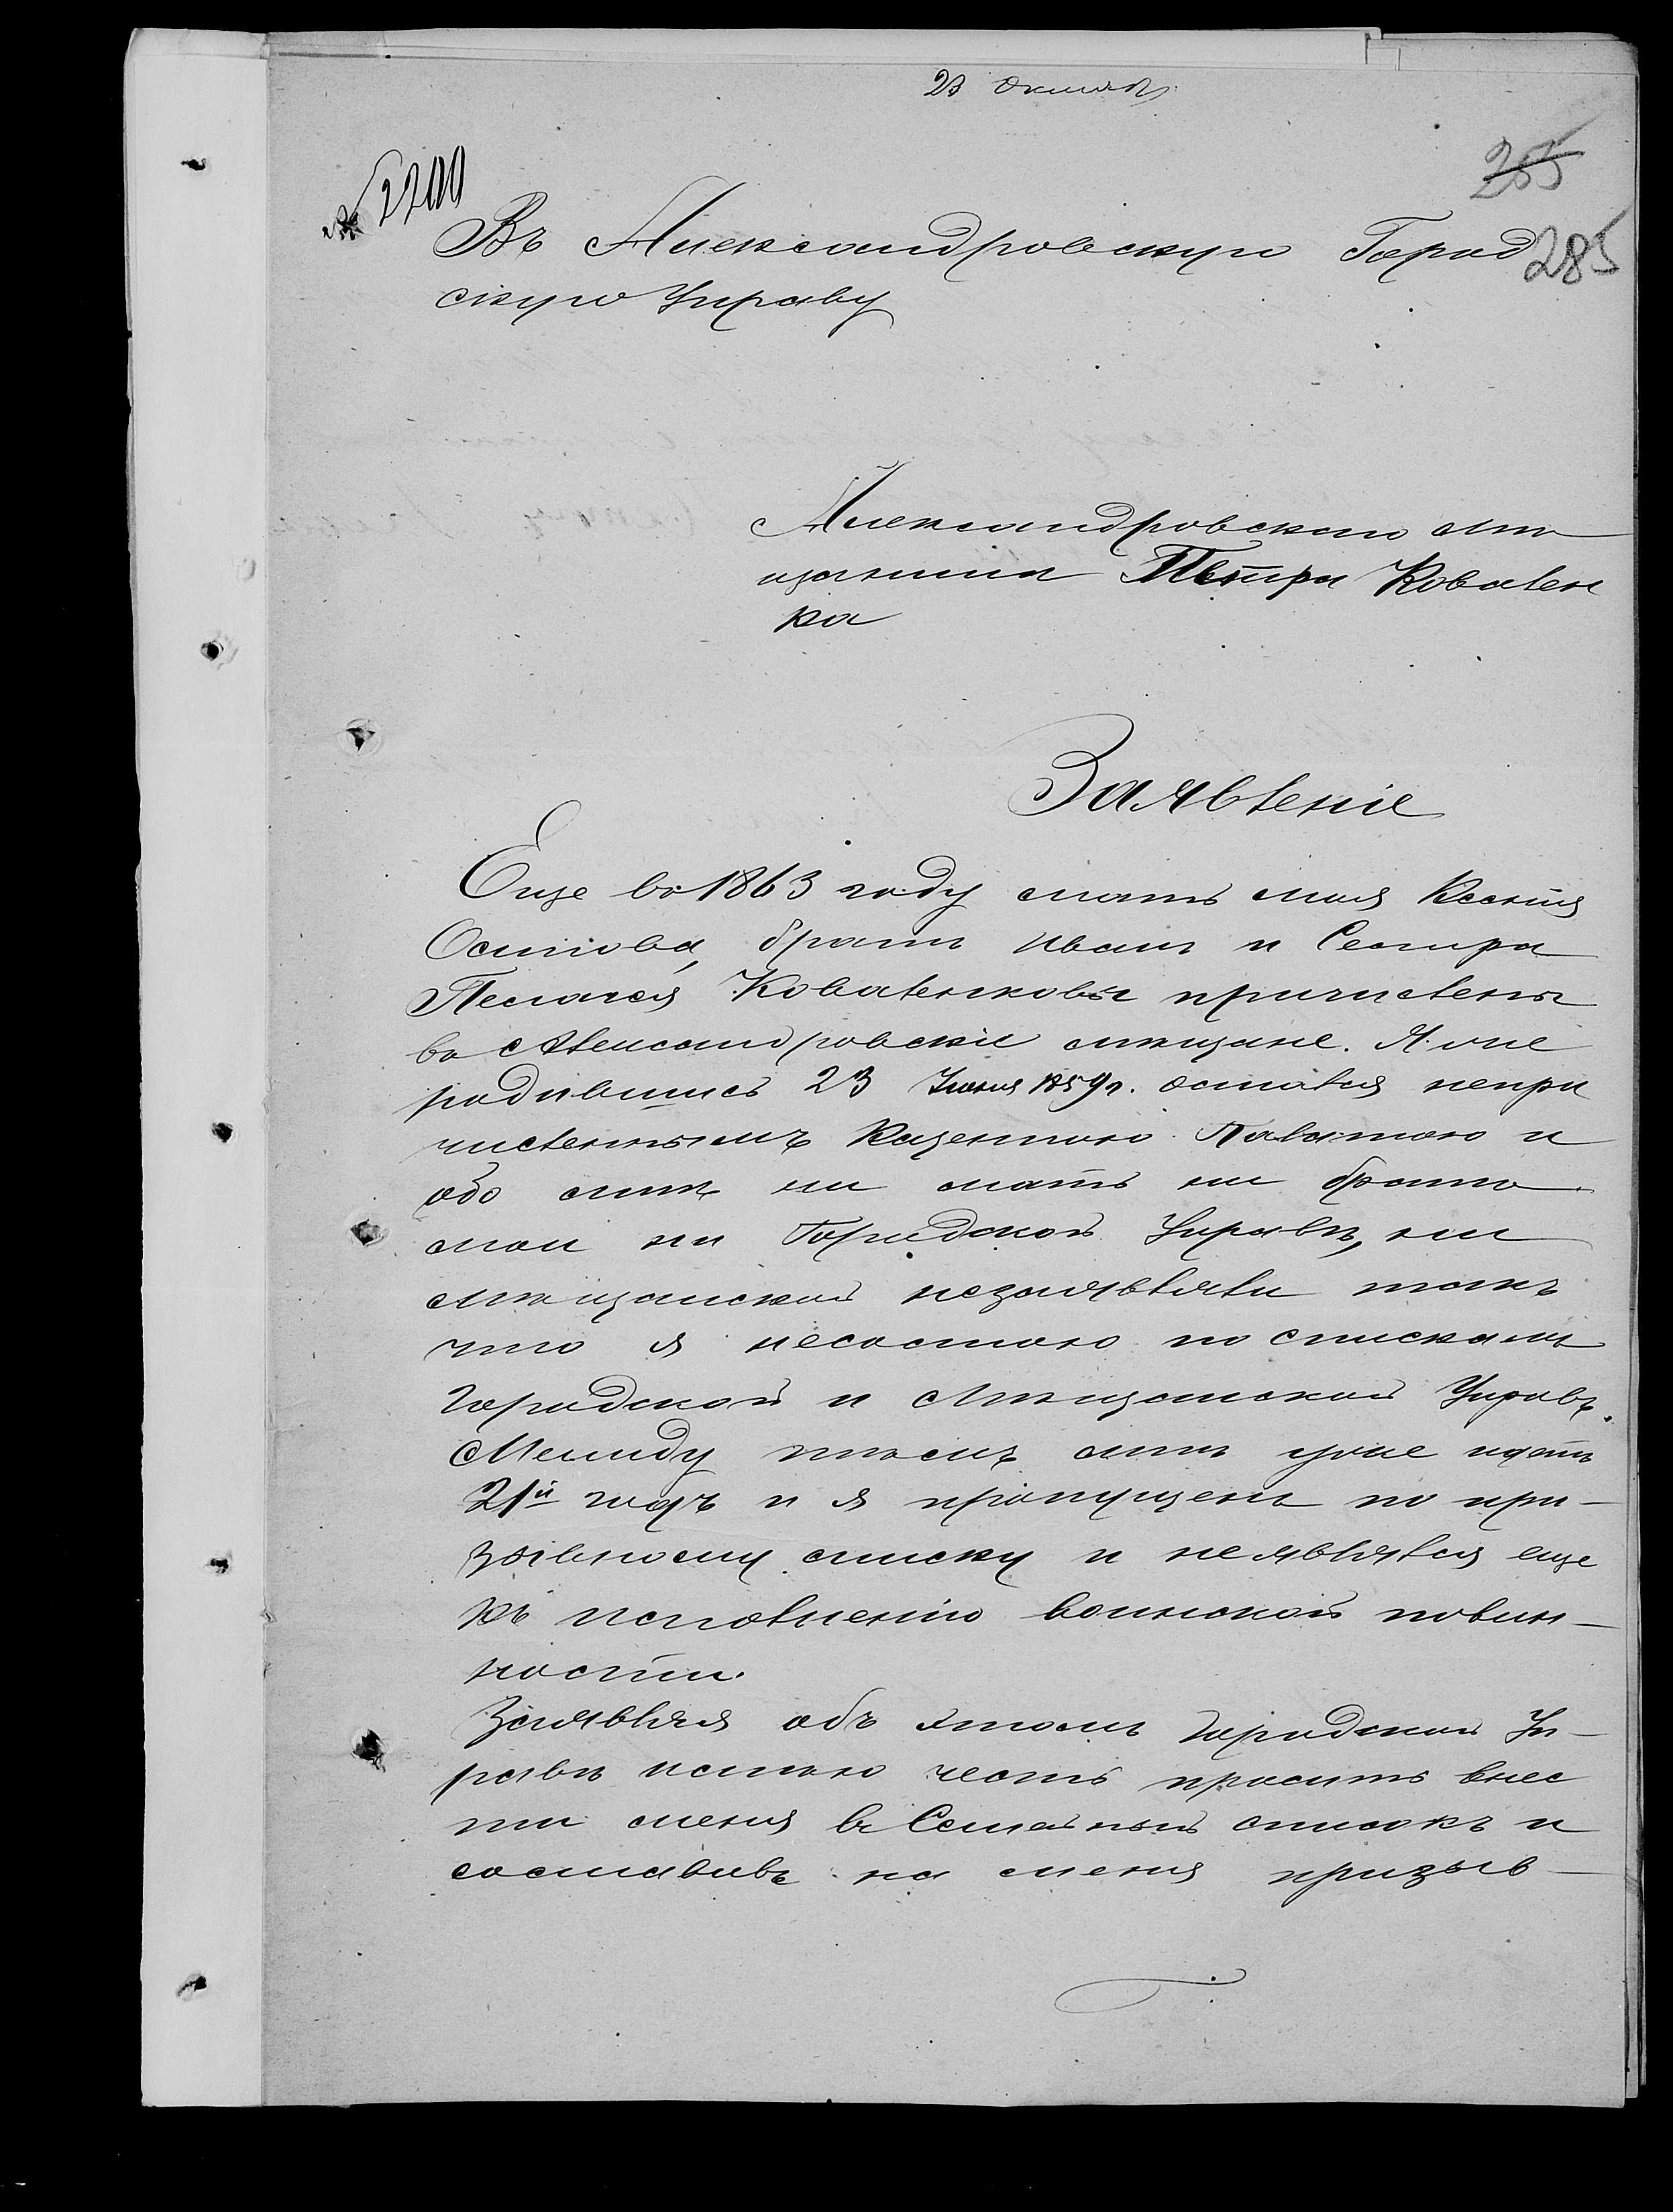 23 Октяб.
285
№ 2200
Въ Александровскую Город
285
скую Управу
Александровскаго мѣ
щанина Петра Ковален
ка
Заявленіе
Еще во 1863 году мать моя Ксенія
Осипова, братъ Иванъ и Сестра
Пелагея Коваленковы причислены
во Александровскіе мѣщане. Я оне
родившись 23 Іюня 1859 г. остался непри
численнымъ Казенною Палатою и
обо мнѣ ни мать ни братъ
мои ни Городской Управѣ, ни
мѣщанской незаявляли такъ
что я несостою по спискамъ
Городской и Мѣщанской Управъ.
Между тѣмъ мнѣ уже идетъ
21й годъ и я пропущенъ по при-
зывному списку и неявлялся еще
къ исполненію воинской повин-
ности.
Заявляя объ этомъ Городской Уп-
равѣ имѣю честь просить внес
ти меня в Семейный списокъ и
составивъ на меня призыв-